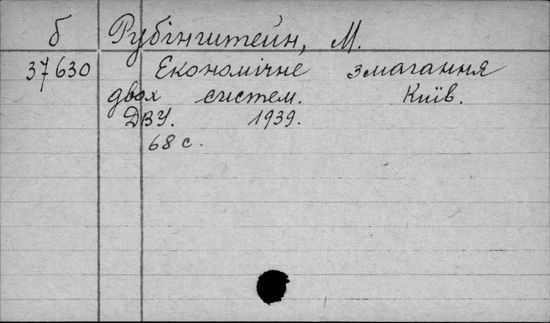 б Рубінштейн, М.
37630 Економічне змагання
двох систем. Київ.
ДВУ. 1939.
68 с.